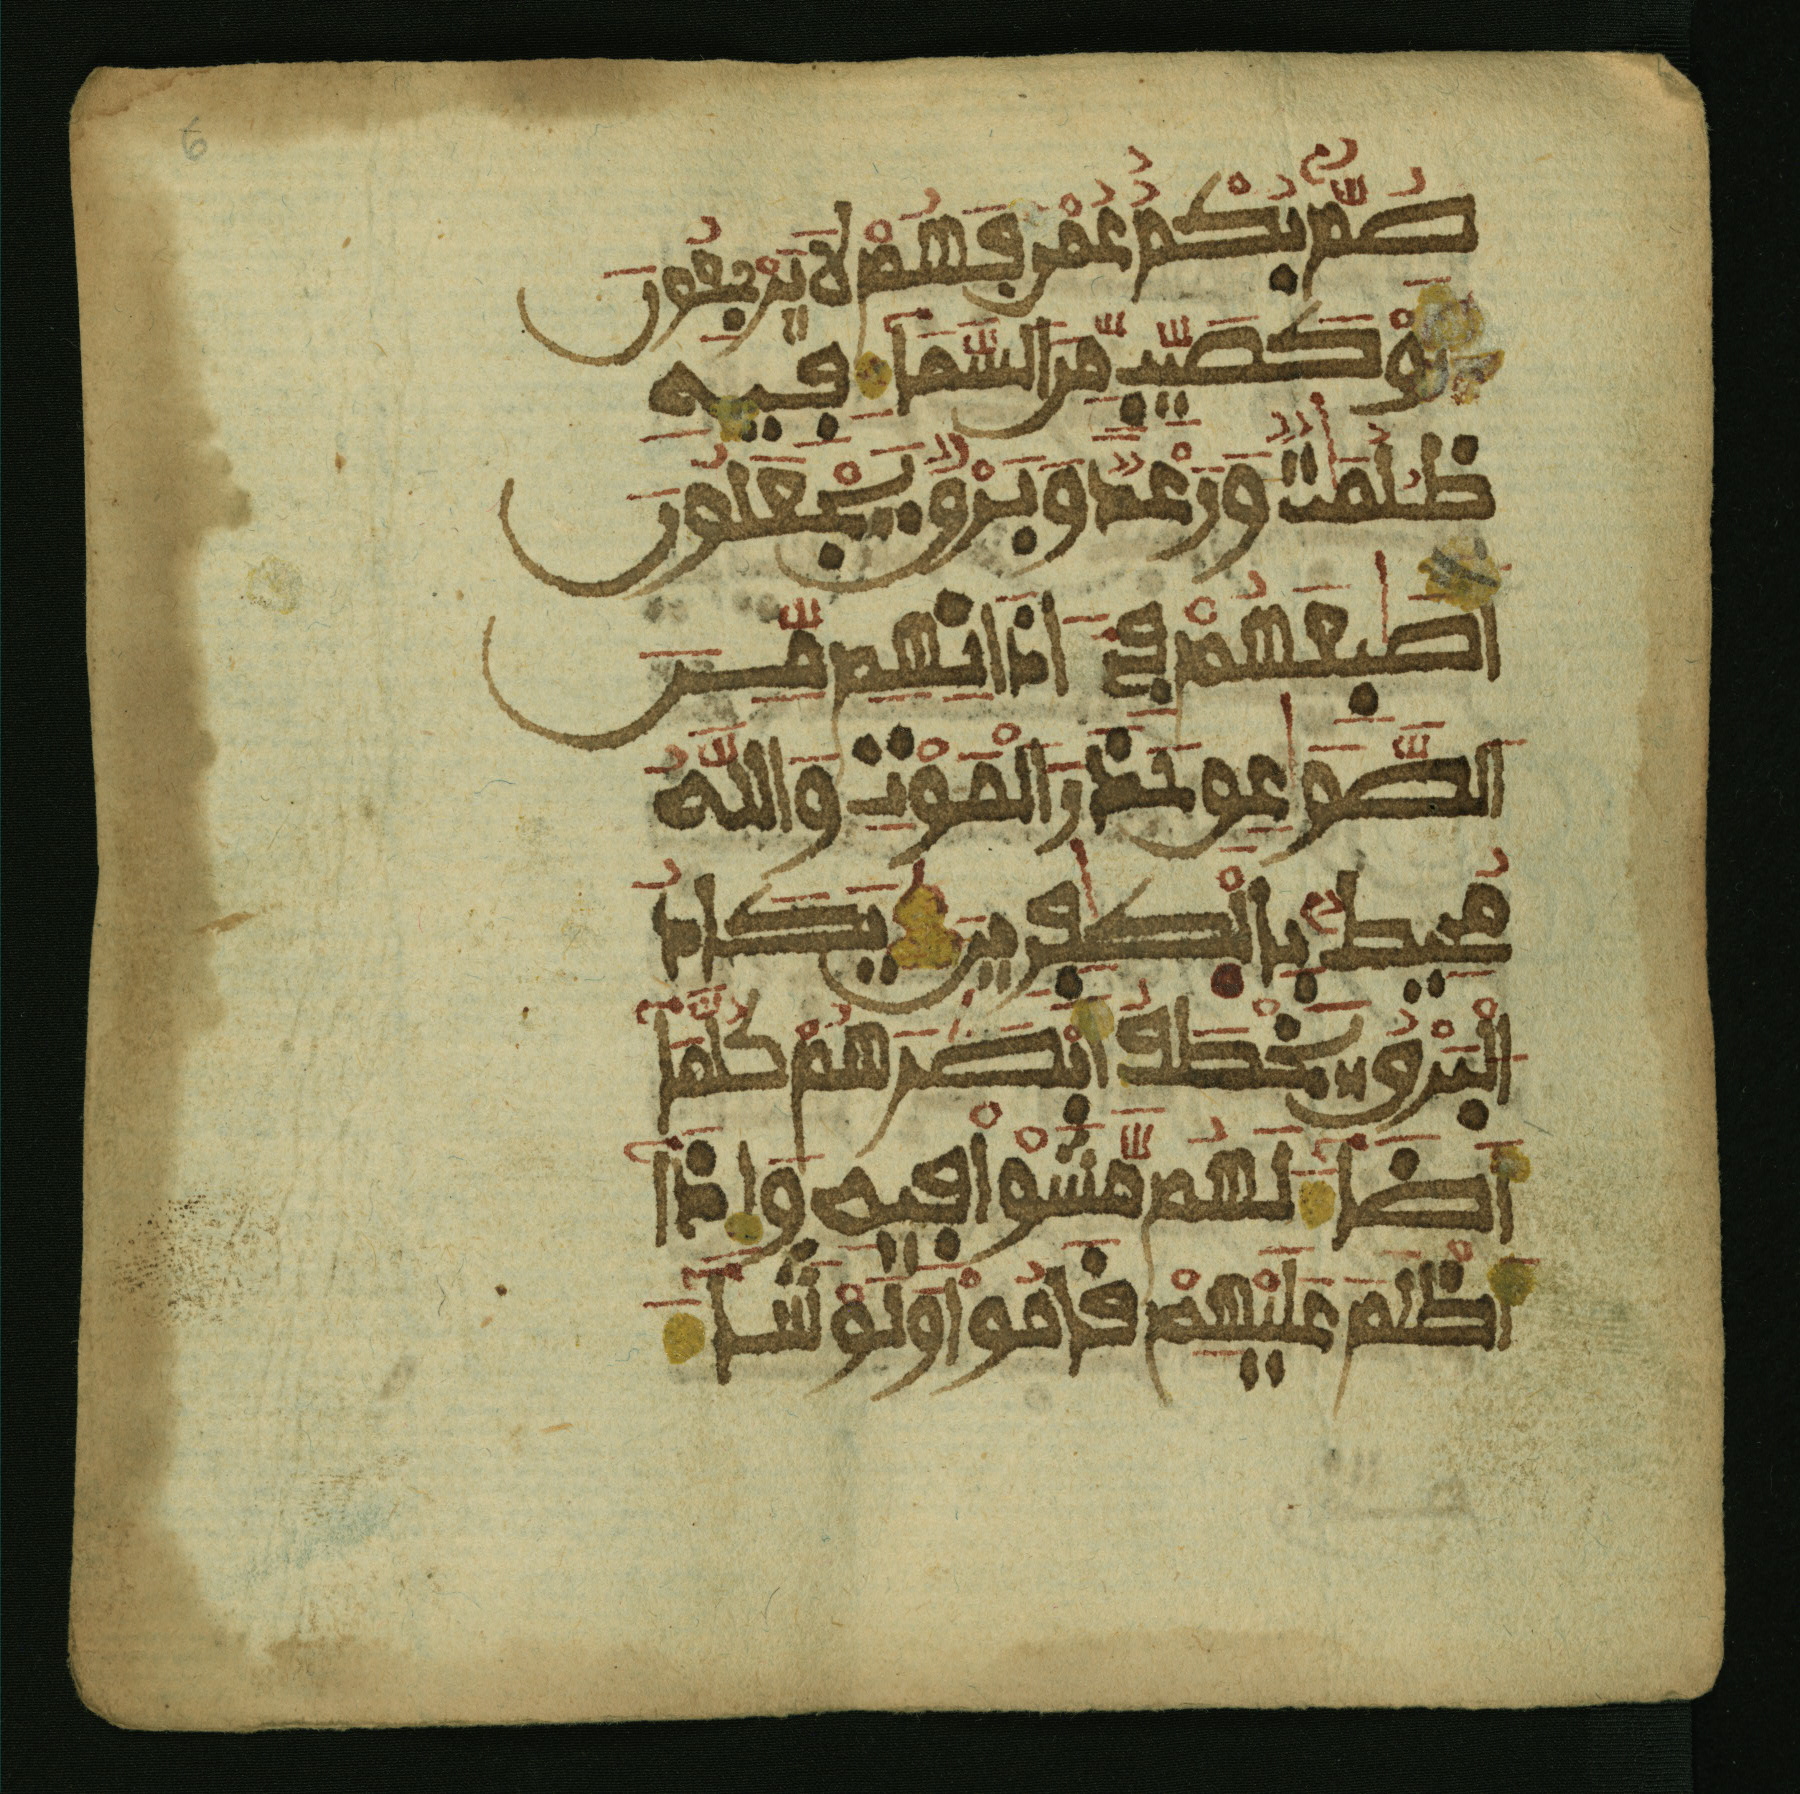 صُمٌّ بُكْمٌ عُمْىٌ فَهُمْ لَا يَرْجِعُونَ
أَوْ كَصَيِّبٍ مِّنَ السَّمَاءِ فِيهِ
ظُلُمَٰتٌ وَرَعْدٌ وَبَرْقٌ يَجْعَلُونَ
أَصَٰبِعَهُمْ فِي ءَاذَانِهِم مِّنَ
الصَّوَٰعِقِ حَذَرَ الْمَوْتِ وَاللَّهُ
مُحِيطٌ بِالْكَٰفِرِينَ يَكَادُ
الْبَرْقُ يَخْطَفُ أَبْصَٰرَهُمْ كُلَّمَا
أَضَاءَ لَهُم مَّشَوْا فِيهِ وَإِذَا
أَظْلَمَ عَلَيْهِمْ قَامُوا وَلَوْ شَاءَ
6